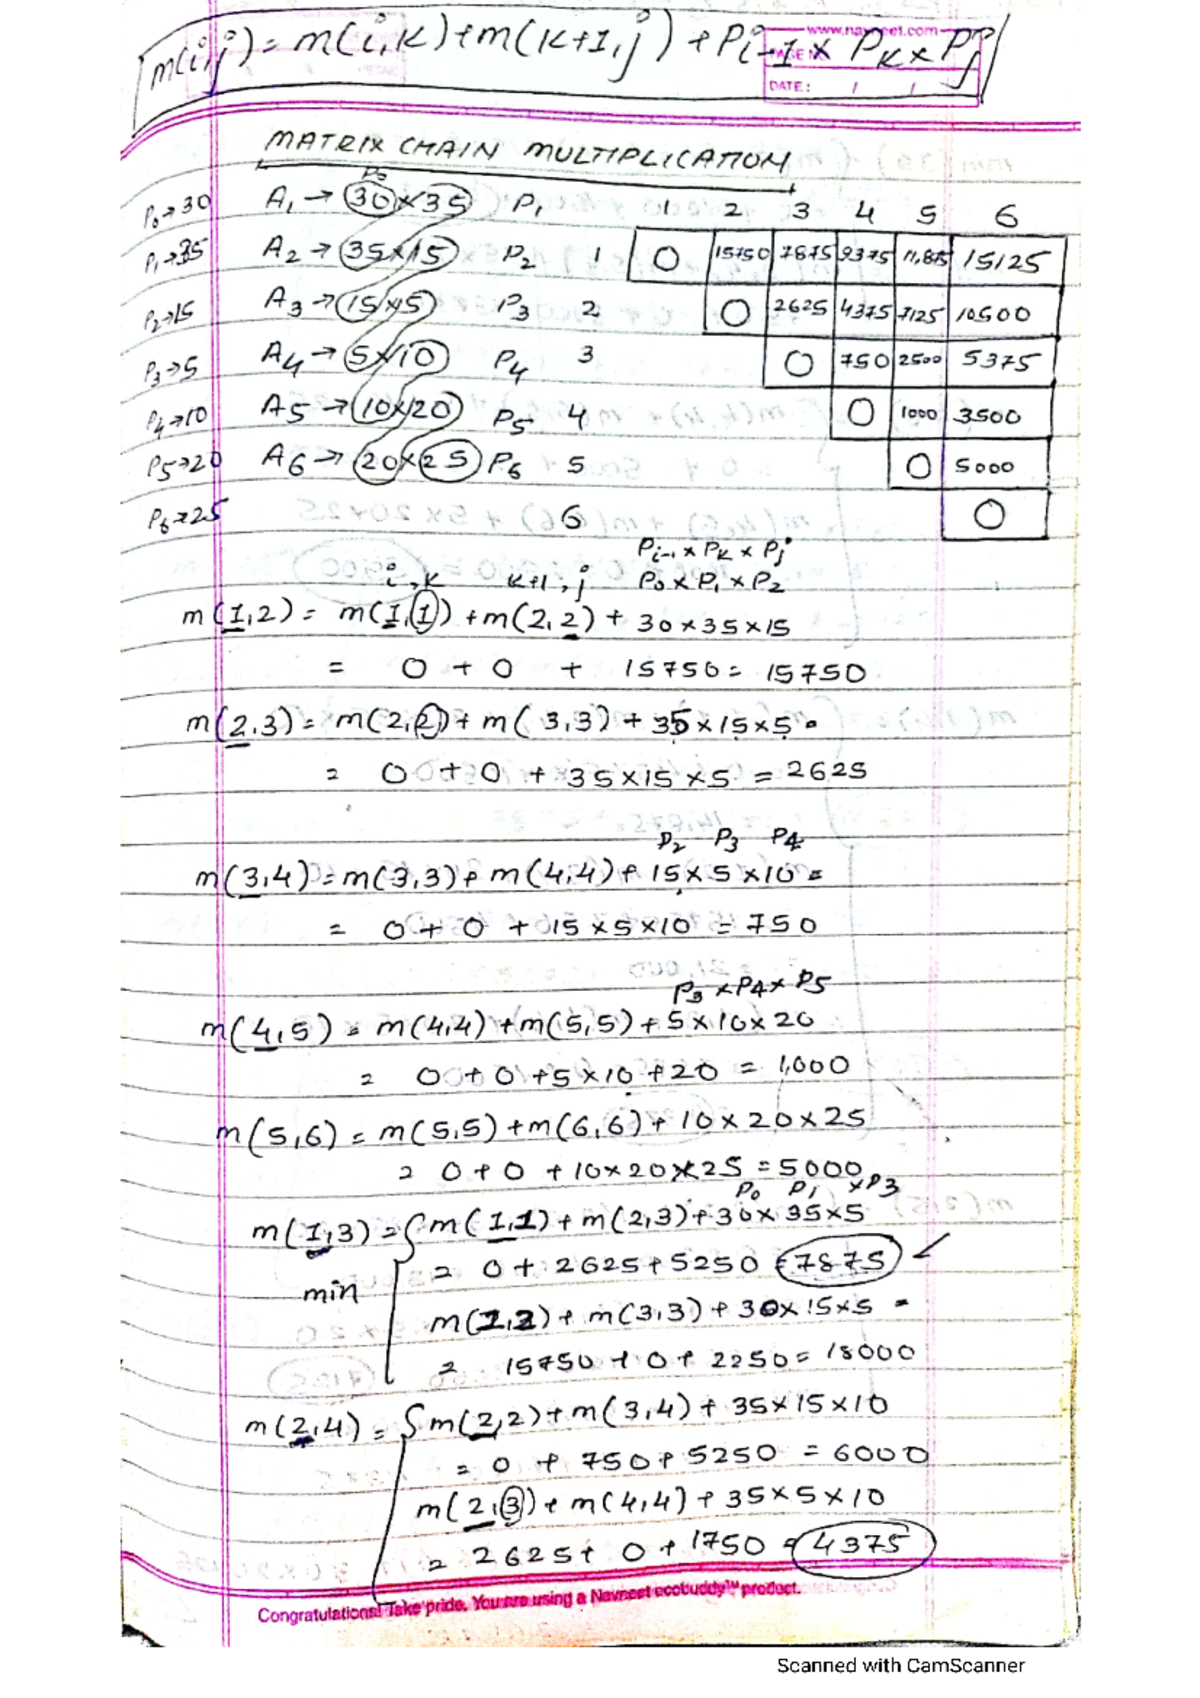 m(i,j) = m(i,k) + m(k+1,j) + Pi-1 x Pk x Pj
www.navneet.com
PAGE NO.
DATE: / /
MATRIX CHAIN MULTIPLICATION
P0→30 A1→ 30x35 P1 P0
P1→35 A2→ 35x15 P2
P2→15 A3→ 15x5 P3
P3→5 A4→ 5x10 P4
P4→10 A5→ 10x20 P5
P5→20 A6→ 20x25 P6
P6→25
1 2 3 4 5 6
1 0 15750 7875 9375 11,875 15125
2 0 2625 4375 7125 10500
3 0 750 2500 5375
4 0 1000 3500
5 0 5000
6 0
Pi-1 x Pk x Pj
i,k k+1,j P0 x P1 x P2
m(1,2) = m(1,1) + m(2,2) + 30x35x15
= 0 + 0 + 15750 = 15750
m(2,3) = m(2,2) + m(3,3) + 35x15x5 =
= 0 + 0 + 35x15x5 = 2625
P2 P3 P4
m(3,4) = m(3,3) + m(4,4) + 15x5x10 =
= 0 + 0 + 15x5x10 = 750
P3 x P4 x P5
m(4,5) = m(4,4) + m(5,5) + 5x10x20
= 0 + 0 + 5x10+20 = 1,000
m(5,6) = m(5,5) + m(6,6) + 10x20x25
= 0 + 0 + 10x20x25 = 5000
P0 P1 xP3
m(1,3) = { m(1,1) + m(2,3) + 30x35x5
min = 0 + 2625 + 5250 = 7875 ✓
m(1,2) + m(3,3) + 30x15x5 =
= 15750 + 0 + 2250 = 18000
m(2,4) = { m(2,2) + m(3,4) + 35x15x10
= 0 + 750 + 5250 = 6000
m(2,3) + m(4,4) + 35x5x10
= 2625 + 0 + 1750 = 4375
Congratulations! Take pride. You are using a Navneet ecobuddy™ product.
Scanned with CamScanner